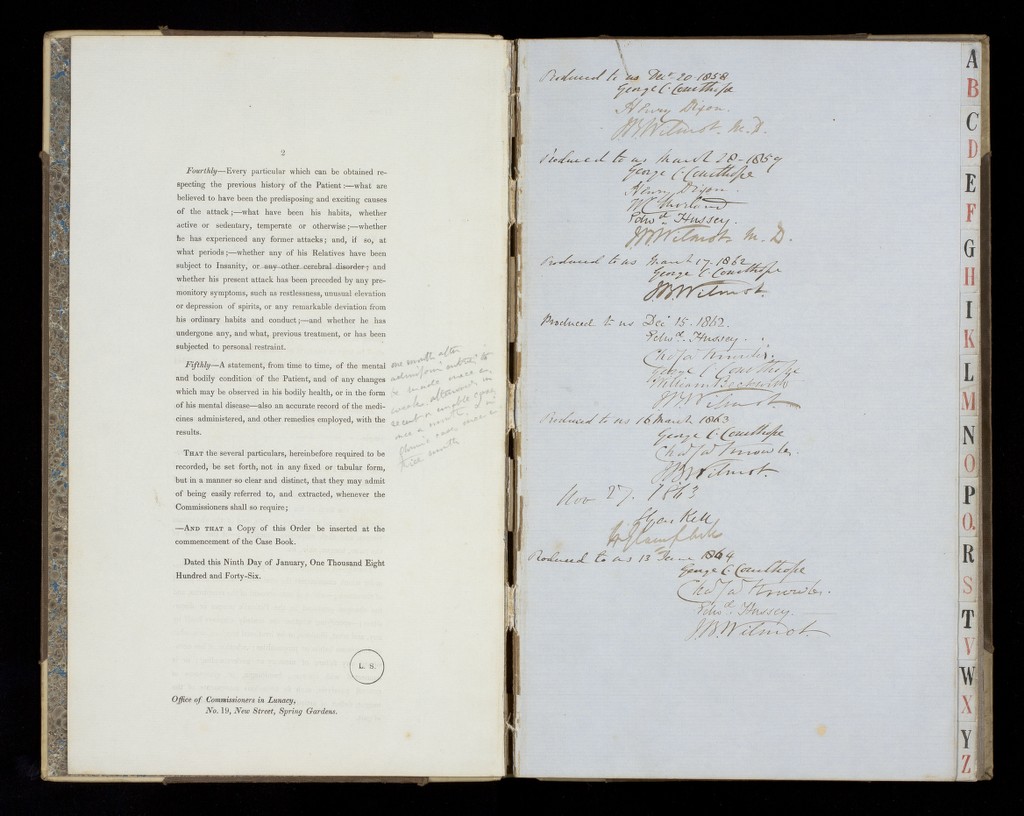 2
Fourthly—Every particular which can be obtained re-
specting the previous history of the Patient:—what are
believed to have been the predisposing and exciting causes
of the attack;—what have been his habits, whether
active or sedentary, temperate or otherwise;—whether
he has experienced any former attacks; and, if so, at
what periods;—whether any of his Relatives have been
subject to Insanity, or any other cerebral disorder; and
whether his present attack has been preceded by any pre-
monitory symptoms, such as restlessness, unusual elevation
or depression of spirits, or any remarkable deviation from
his ordinary habits and conduct;—and whether he has
undergone any, and what, previous treatment, or has been
subjected to personal restraint.
Fifthly—A statement, from time to time, of the mental
and bodily condition of the Patient, and of any changes
which may be observed in his bodily health, or in the form
of his mental disease—also an accurate record of the medi-
cines administered, and other remedies employed, with the
results.
THAT the several particulars, hereinbefore required to be
recorded, be set forth, not in any fixed or tabular form,
but in a manner so clear and distinct, that they may admit
of being easily referred to, and extracted, whenever the
Commissioners shall so require;
—AND THAT a Copy of this Order be inserted at the
commencement of the Case Book.
Dated this Ninth Day of January, One Thousand Eight
Hundred and Forty-Six.
L. S.
Office of Commissioners in Lunacy,
No. 19, New Street, Spring Gardens.
one month after
admission entries to
be made once a
week afterward in
recent or curable cases
once a month in
chronic cases once in
three months
Produced to us Decr 20 1858
George C Courthope
Henry Dixon.
JB Wilmot. M.D.
Produced to us March 28-1859
George C Courthope
Henry Dixon.
Edwd Hussey.
JB Wilmot M.D.
Produced to us March 17. 1862
George C Courthope
JB Wilmot.
Produced to us Dec 15. 1862.
Edwd. Hussey.
George C Courthope
William Beckwith
JB Wilmot.
Produced to us 16 March 1863
George C Courthope
JB Wilmot.
Nov 27. 1863
Produced to us 13 June 1864
George C Courthope
Edwd. Hussey.
J.B. Wilmot.
A
B
C
D
E
F
G
H
I
K
L
M
N
O
P
Q.
R
S
T
V
W
X
Y
Z